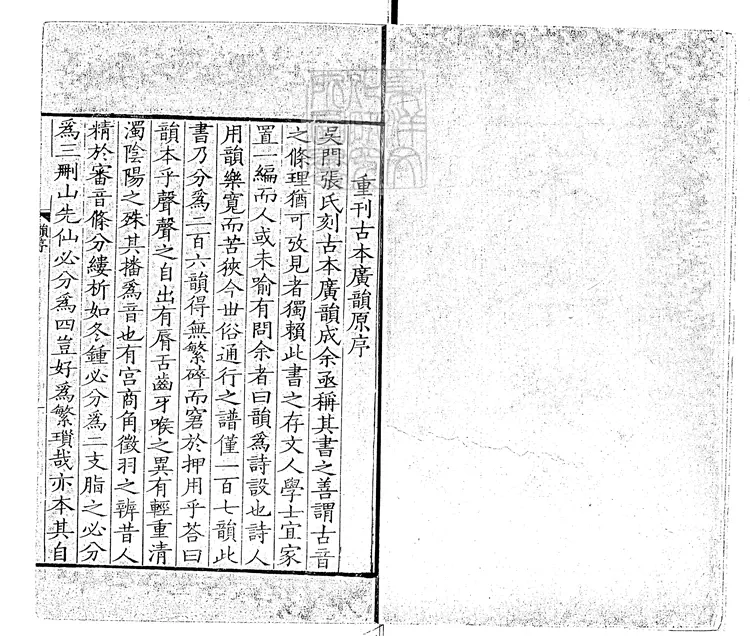 重刊古本廣韻原序
吳門張氏刻古本廣韻成余亟稱其書之善謂古音
之條理猶可攷見者獨賴此書之存文人學士宜家
置一編而人或未喻有問余者曰韻爲詩設也詩人
用韻樂寛而苦狹今世俗通行之譜僅一百七韻此
書乃分爲二百六韻得無繁碎而窘於押用乎荅曰
韻本乎聲聲之自出有脣舌齒牙喉之異有輕重清
濁陰陽之殊其播爲音也有宫商角徵羽之辨昔人
精於審音條分縷析如冬鍾必分爲二支脂之必分
爲三刪山先仙必分爲四豈好爲繁瑣哉亦本其自
韻序